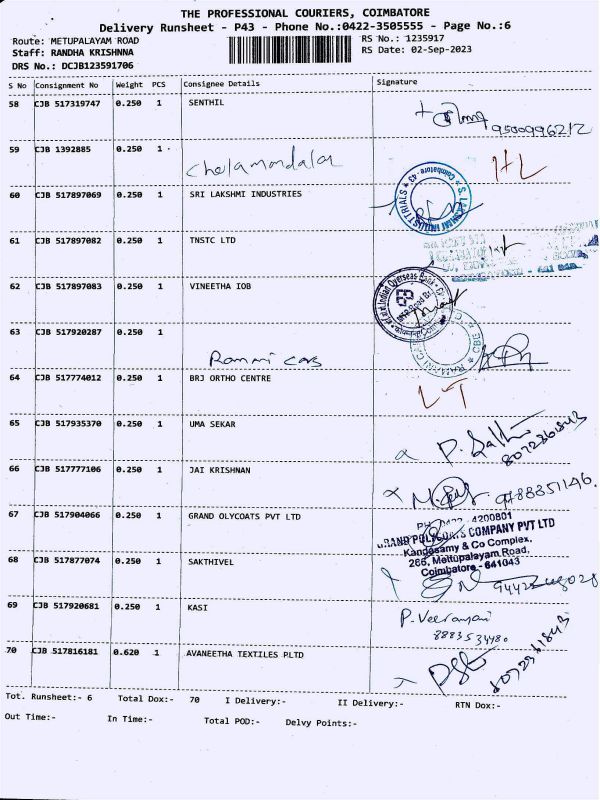 THE PROFESSIONAL COURIERS, COIMBATORE
Delivery Runsheet - P43 - Phone No.:0422-3505555 - Page No.:6
Route: METUPALAYAM ROAD
RS No.: 1235917
Staff: RANDHA KRISHNNA
RS Date: 02-Sep-2023
DRS No.: DCJB123591706
S No Consignment No Weight PCS Consignee Details Signature
58 CJB 517319747 0.250 1 SENTHIL
9500996212
59 CJB 1392885 0.250 1
HL
60 CJB 517897069 0.250 1 SRI LAKSHMI INDUSTRIES
61 CJB 517897082 0.250 1 TNSTC LTD
62 CJB 517897083 0.250 1 VINEETHA IOB
Indian Overseas Bank
63 CJB 517920287 0.250 1
64 CJB 517774012 0.250 1 BRJ ORTHO CENTRE
65 CJB 517935370 0.250 1 UMA SEKAR
66 CJB 517777106 0.250 1 JAI KRISHNAN
67 CJB 517904066 0.250 1 GRAND OLYCOATS PVT LTD
4200801
COMPANY PVT LTD
Kandasamy & Co Complex,
Mettupalayam Road,
Coimbatore - 641043
68 CJB 517877074 0.250 1 SAKTHIVEL
69 CJB 517920681 0.250 1 KASI
P. Veeramani
8883534480
70 CJB 517816181 0.620 1 AVANEETHA TEXTILES PLTD
Tot. Runsheet:- 6 Total Dox:- 70 I Delivery:- II Delivery:- RTN Dox:-
Out Time:- In Time:- Total POD:- Delvy Points:-